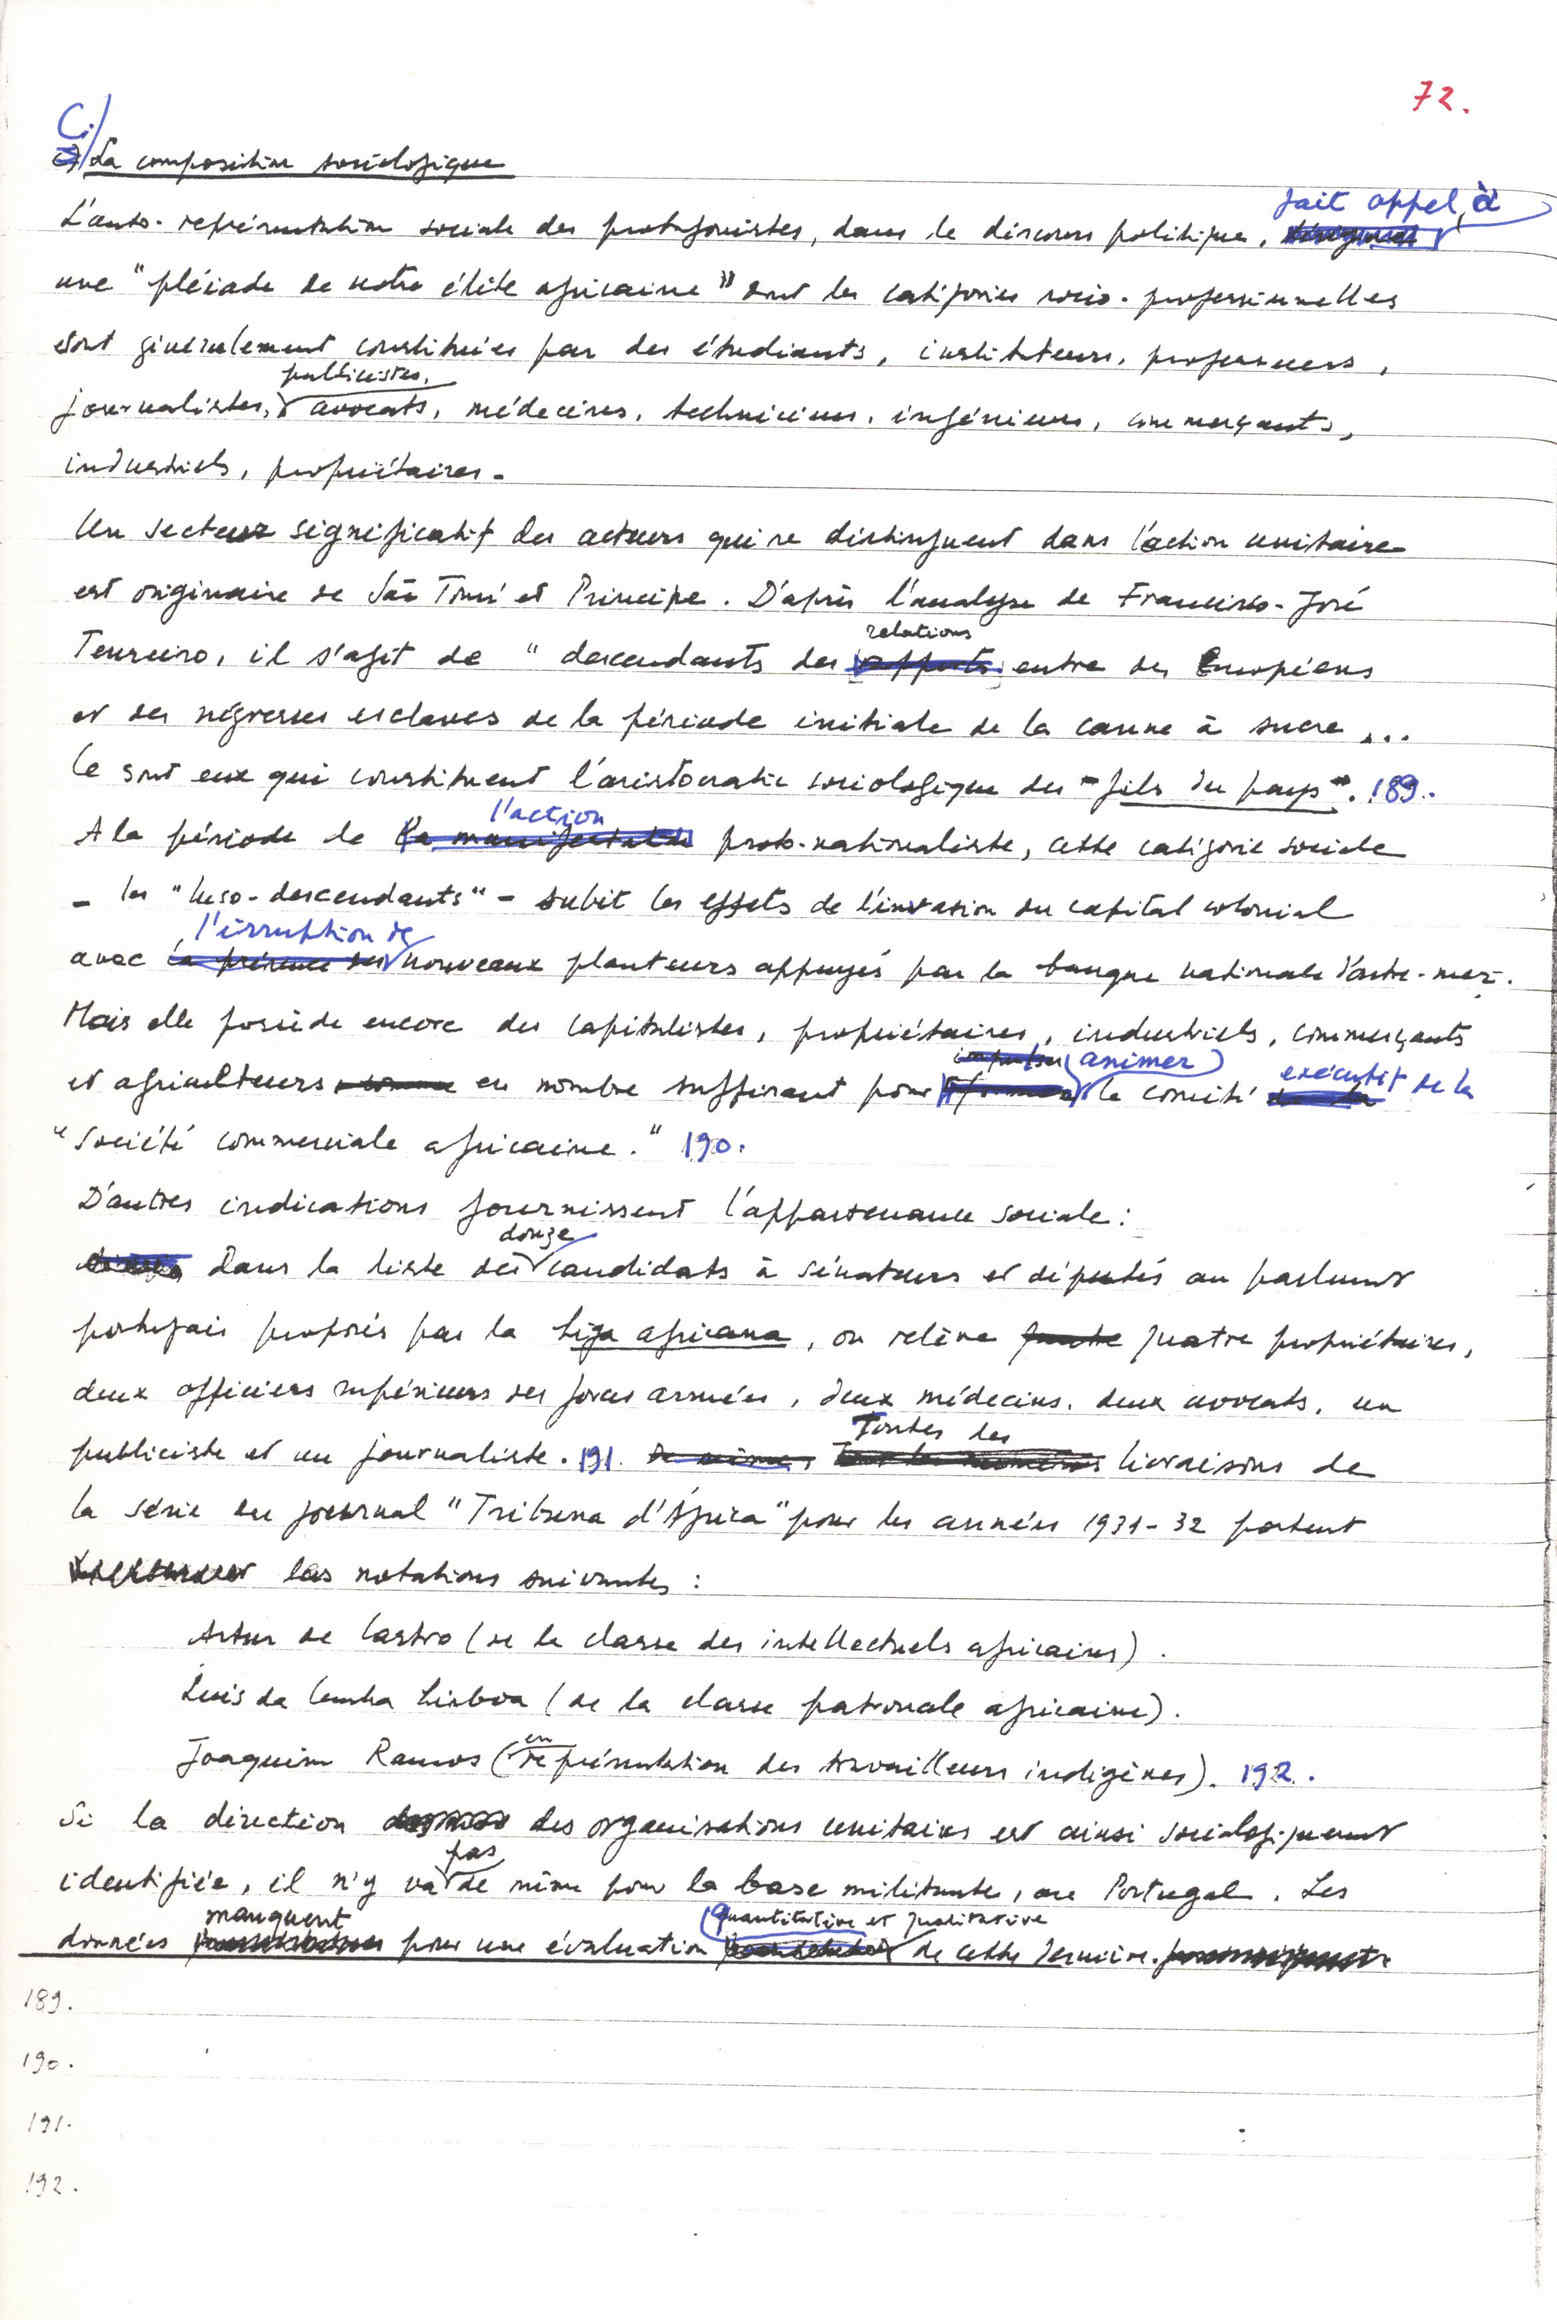 72.
C./ La composition sociologique
L'auto-représentation sociale des protagonistes, dans le discours politique, fait appel à
une "pléiade de notre élite africaine" dont les catégories socio-professionnelles
sont généralement constituées par des étudiants, instituteurs, professeurs,
journalistes, publicistes, avocats, médecins, techniciens, ingénieurs, commerçants,
industriels, propriétaires.
Un secteur significatif des acteurs qui se distinguent dans l'action unitaire
est originaire de São Tomé et Principe. D'après l'analyse de Francisco-José
Tenreiro, il s'agit de "descendants des relations entre des Européens
et des négresses esclaves de la période initiale de la canne à sucre...
Ce sont eux qui constituent l'aristocratie sociologique des "fils du pays". 189.
A la période de l'action proto-nationaliste, cette catégorie sociale
- les "luso-descendants" - subit les effets de l'invasion du capital colonial
avec l'irruption de nouveaux planteurs appuyés par la banque nationale d'outre-mer.
Mais elle possède encore des capitalistes, propriétaires, industriels, commerçants
et agriculteurs en nombre suffisant pour animer le comité exécutif de la
"Société commerciale africaine." 190.
D'autres indications fournissent l'appartenance sociale:
Dans la liste des douze candidats à sénateurs et députés au parlement
portugais proposés par la Liga africana, on relève quatre propriétaires,
deux officiers supérieurs des forces armées, deux médecins, deux avocats, un
publiciste et un journaliste. 191. Toutes les livraisons de
la série du journal "Tribuna d'África" pour les années 1931-32 portent
les notations suivantes:
Artur de Castro (de la classe des intellectuels africains).
Luis da Cunha Lisboa (de la classe patronale africaine).
Joaquim Ramos (en représentation des travailleurs indigènes). 192.
Si la direction des organisations unitaires est ainsi sociologiquement
identifiée, il n'y va pas de même pour la base militante, au Portugal. Les
données manquent pour une évaluation quantitative et qualitative de cette dernière.
189.
190.
191.
192.